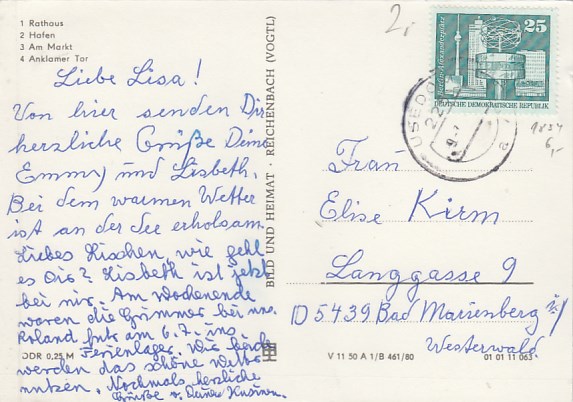 1 Rathaus
2 Hafen
3 Am Markt
4 Anklamer Tor
Liebe Lisa!
Von hier senden Dir
herzliche Grüße Deine
Emmy und Lisbeth.
Bei dem warmen Wetter
ist an der See erholsam.
Liebes Lischen, wie geht
es Dir? Lisbeth ist jetzt
bei mir. Am Wochenende
waren die Grimmer bei uns.
Roland fuhr am 6.7. ins
Ferienlager. Wir beide
werden das schöne Wetter
nutzen. Nochmals herzliche
Grüße v. Deiner
DDR 0,25 M
BILD UND HEIMAT · REICHENBACH (VOGTL)
2,-
25
Berlin-Alexanderplatz
DEUTSCHE DEMOKRATISCHE REPUBLIK
USEDOM
22
a
6,-
Frau
Elise Kirm
Langgasse 9
D 5439 Bad Marienberg
Westerwald
V 11 50 A 1/B 461/80
01 01 11 063